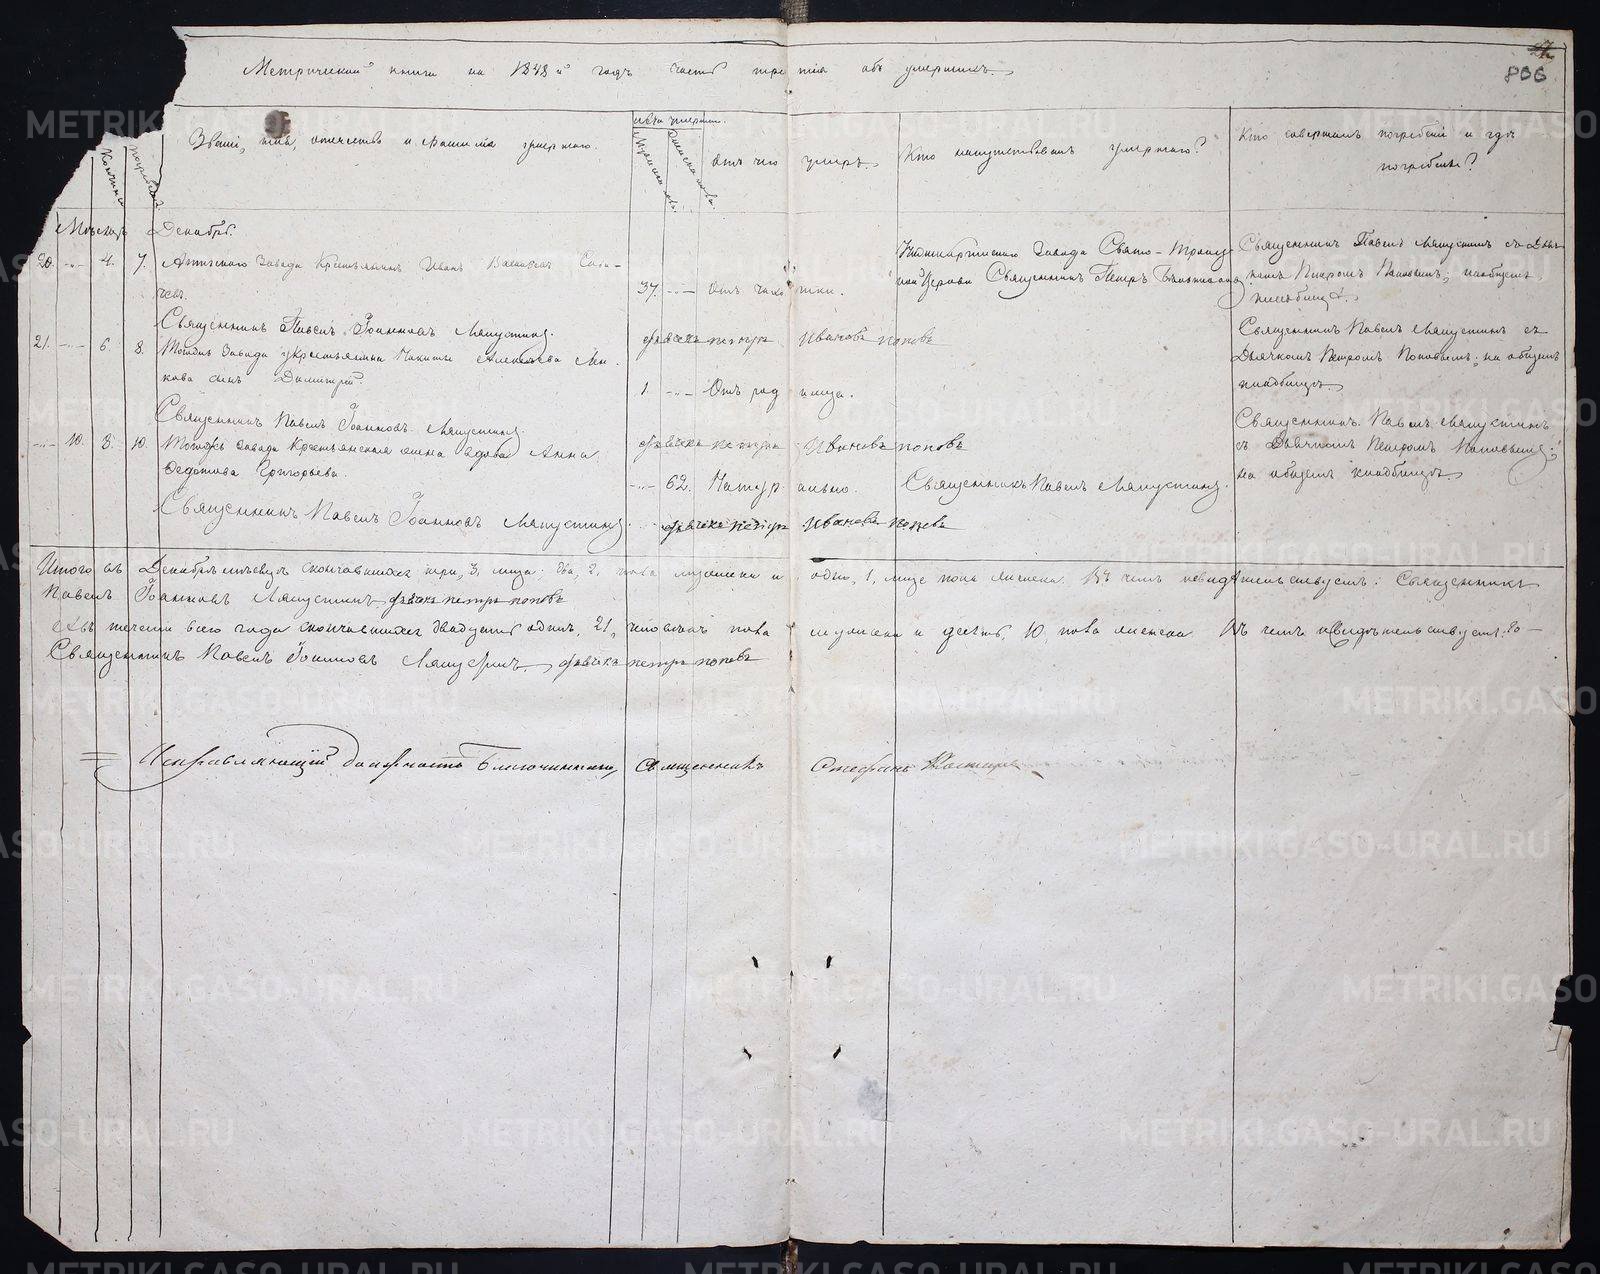 Метрической книги на 1848й годъ часть третія объ умершихъ.
806
Званіе, имя, отечество и фамилія умершаго.
кончины
погребенія
лѣта умерш.
Мужеска
Женска
Отъ чего умеръ.
Кто исповѣдывалъ умершаго?
Кто совершалъ погребеніе и гдѣ
погребены?
Мѣсяцъ Декабрь.
20. 4. 7.
завода крестьянинъ Иванъ
37. Отъ чахотки.
завода Свято-Троиц-
кой Церкви Священникъ Петръ
Священникъ Павелъ Ляпустинъ съ Дьяч-
комъ Петромъ Поповымъ, на общемъ
кладбищѣ.
Священникъ Павелъ Іоанновъ Ляпустинъ.
дьячекъ петръ Ивановъ поповъ
21. 6. 8.
Тогожъ завода у крестьянина Никиты
сынъ Димитрій.
1. Отъ родимца.
Священникъ Павелъ Ляпустинъ съ
Дьячкомъ Петромъ Поповымъ; на общемъ
кладбищѣ
Священникъ Павелъ Іоанновъ Ляпустинъ.
дьячекъ петръ Ивановъ поповъ
10. 8. 10.
Тогожъ завода Крестьянская жена вдова Анна
Федотова Григорьева.
62. Натурально.
Священникъ Павелъ Ляпустинъ.
Священникъ Павелъ Ляпустинъ
съ Дьячкомъ Петромъ Поповымъ;
на общемъ кладбищѣ.
Священникъ Павелъ Іоанновъ Ляпустинъ.
дьячекъ петръ Ивановъ поповъ
Итого въ Декабрѣ мѣсяцѣ скончавшихся три, 3, лица; два, 2, пола мужеска и одно, 1, лице пола женска. Въ чемъ и свидѣтельствуемъ: Священникъ
Павелъ Іоанновъ Ляпустинъ дьячекъ петръ поповъ
А въ теченіи всего года скончавшихся двадцать одинъ, 21, человѣкъ пола мужеска и десять, 10, пола женска въ чемъ и свидѣтельствуемъ:
Священникъ Павелъ Іоанновъ Ляпустинъ. дьячекъ петръ поповъ
Исправляющій должность Благочиннаго, Священникъ Стефанъ
METRIKI.GASO-URAL.RU